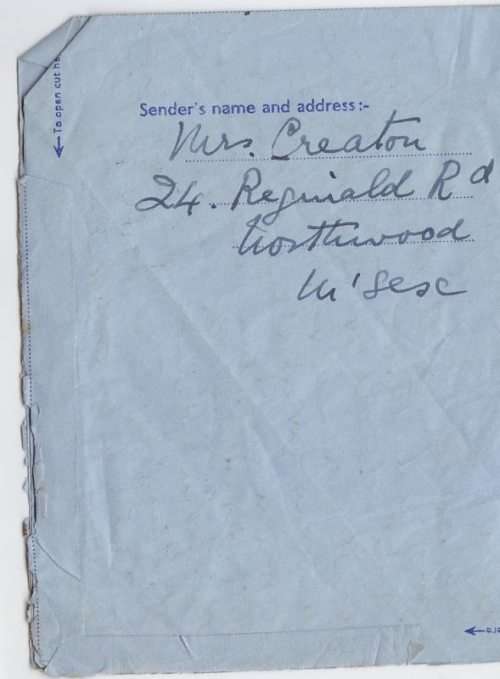 To open cut he
Sender's name and address:-
Mrs. Creaton
24. Reginald Rd
Northwood
M'sesc